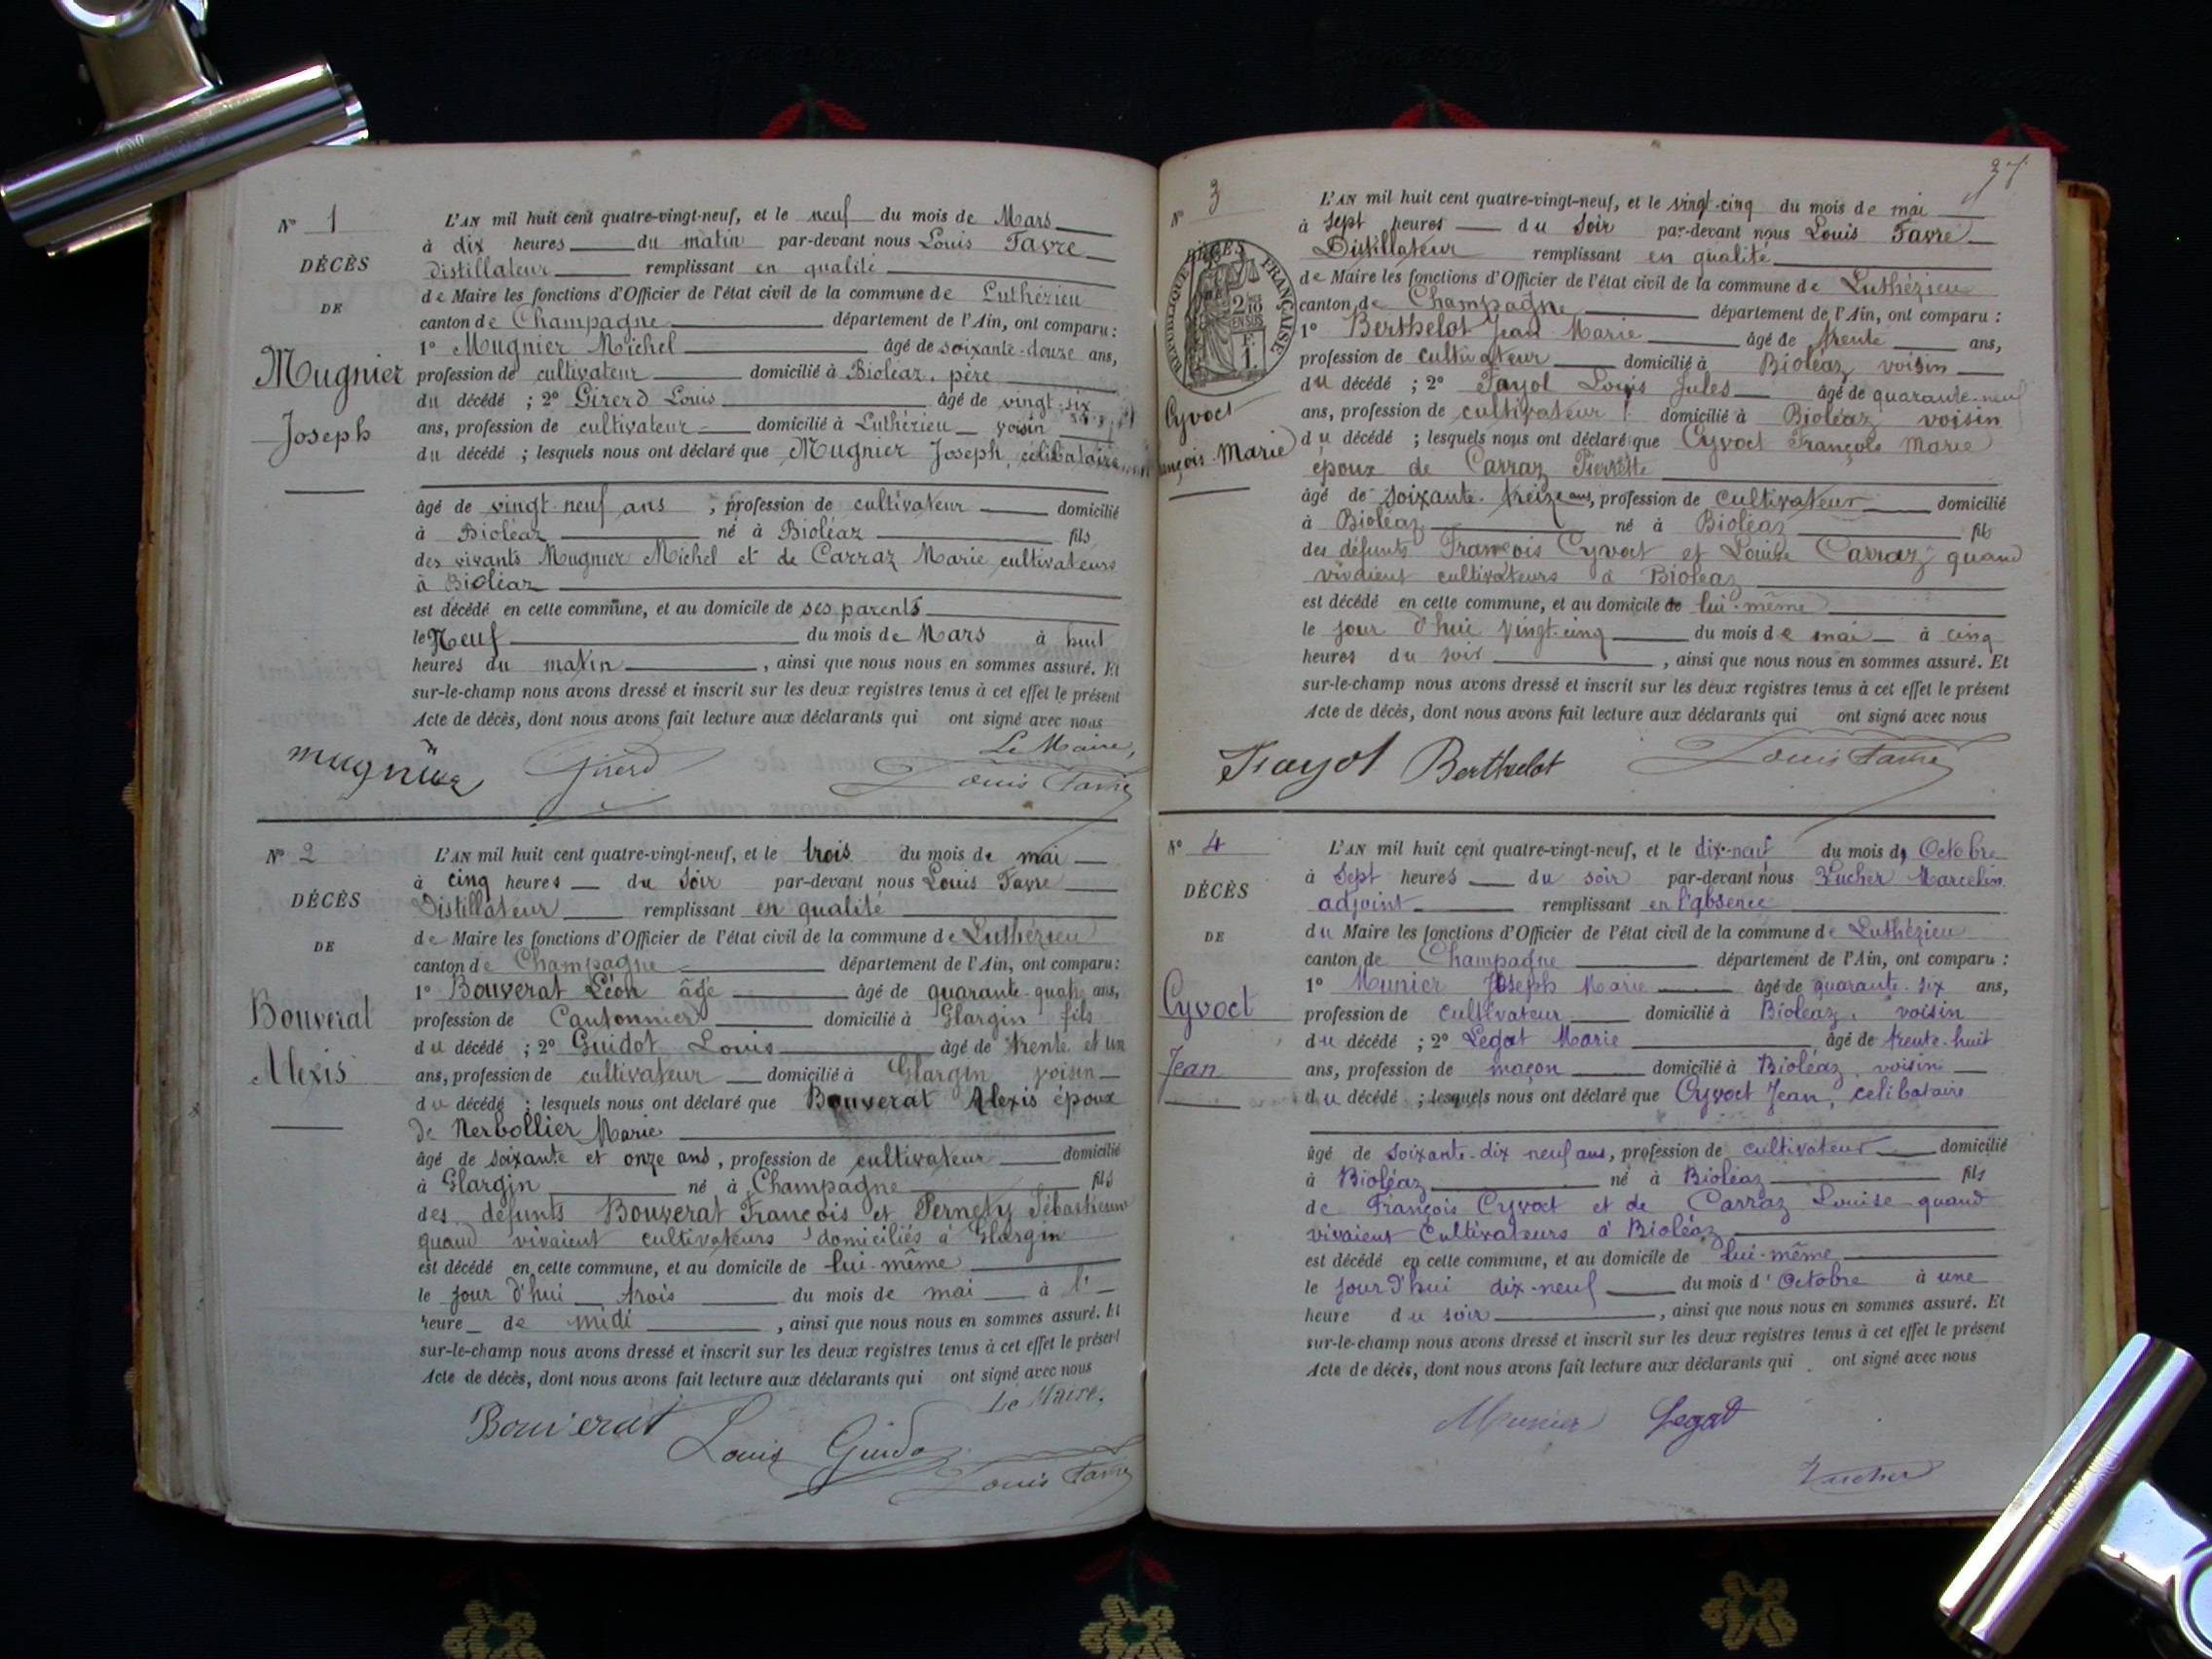 N° 1
DÉCÈS
DE
Mugnier
Joseph
L'AN mil huit cent quatre-vingt-neuf, et le neuf du mois de Mars
à dix heures du matin par-devant nous Louis Favre
Distillateur remplissant en qualité
de Maire les fonctions d'Officier de l'état civil de la commune de Luthézieu
canton de Champagne département de l'Ain, ont comparu :
1° Mugnier Michel âgé de soixante-douze ans,
profession de cultivateur domicilié à Bioléaz, père
du décédé ; 2° Girerd Louis âgé de vingt-six
ans, profession de cultivateur domicilié à Luthézieu voisin
du décédé ; lesquels nous ont déclaré que Mugnier Joseph, célibataire
âgé de vingt-neuf ans, profession de cultivateur domicilié
à Bioléaz né à Bioléaz fils
des vivants Mugnier Michel et de Carraz Marie cultivateurs
à Bioléaz
est décédé en cette commune, et au domicile de ses parents
le Neuf du mois de Mars à huit
heures du matin, ainsi que nous nous en sommes assuré. Et
sur-le-champ nous avons dressé et inscrit sur les deux registres tenus à cet effet le présent
Acte de décès, dont nous avons fait lecture aux déclarants qui ont signé avec nous
Le Maire,
mugnier Girerd Louis Favre
N° 2
DÉCÈS
DE
Bouverat
Alexis
L'AN mil huit cent quatre-vingt-neuf, et le trois du mois de mai
à cinq heures du soir par-devant nous Louis Favre
Distillateur remplissant en qualité
de Maire les fonctions d'Officier de l'état civil de la commune de Luthézieu
canton de Champagne département de l'Ain, ont comparu :
1° Bouverat Léon âgé âgé de quarante-quatre ans,
profession de Cantonnier domicilié à Glargin fils
du décédé ; 2° Guidot Louis âgé de trente et un
ans, profession de cultivateur domicilié à Glargin voisin
du décédé ; lesquels nous ont déclaré que Bouverat Alexis époux
de Nerbollier Marie
âgé de soixante et onze ans, profession de cultivateur domicilié
à Glargin né à Champagne fils
des défunts Bouverat François et Pernety Sébastienne
quand vivaient cultivateurs domiciliés à Glargin
est décédé en cette commune, et au domicile de lui-même
le jour d'hui trois du mois de mai à l'
heure de midi, ainsi que nous nous en sommes assuré. Et
sur-le-champ nous avons dressé et inscrit sur les deux registres tenus à cet effet le présent
Acte de décès, dont nous avons fait lecture aux déclarants qui ont signé avec nous
Le Maire,
Bouverat Louis Guidot Louis Favre
37
N° 3
RÉPUBLIQUE FRANÇAISE
2/10
EN SUS
F.
1.
Cyvoct
François-Marie
L'AN mil huit cent quatre-vingt-neuf, et le vingt-cinq du mois de mai
à sept heures du soir par-devant nous Louis Favre
Distillateur remplissant en qualité
de Maire les fonctions d'Officier de l'état civil de la commune de Luthézieu
canton de Champagne département de l'Ain, ont comparu :
1° Berthelot Jean Marie âgé de trente ans,
profession de cultivateur domicilié à Bioléaz voisin
du décédé ; 2° Fayol Louis Jules âgé de quarante-neuf
ans, profession de cultivateur domicilié à Bioléaz voisin
du décédé ; lesquels nous ont déclaré que Cyvoct François Marie
époux de Carraz Pierrette
âgé de soixante-treize ans, profession de cultivateur domicilié
à Bioléaz né à Bioléaz fils
des défunts François Cyvoct et Louise Carraz quand
vivaient cultivateurs à Bioléaz
est décédé en cette commune, et au domicile de lui-même
le jour d'hui vingt-cinq du mois de mai à cinq
heures du soir, ainsi que nous nous en sommes assuré. Et
sur-le-champ nous avons dressé et inscrit sur les deux registres tenus à cet effet le présent
Acte de décès, dont nous avons fait lecture aux déclarants qui ont signé avec nous
Fayol Berthelot Louis Favre
N° 4
DÉCÈS
DE
Cyvoct
Jean
L'AN mil huit cent quatre-vingt-neuf, et le dix-neuf du mois d'Octobre
à sept heures du soir par-devant nous Zucher Marcelin
adjoint remplissant en l'absence
du Maire les fonctions d'Officier de l'état civil de la commune de Luthézieu
canton de Champagne département de l'Ain, ont comparu :
1° Munier Joseph Marie âgé de quarante-six ans,
profession de cultivateur domicilié à Bioléaz, voisin
du décédé ; 2° Legat Marie âgé de trente-huit
ans, profession de maçon domicilié à Bioléaz, voisin
du décédé ; lesquels nous ont déclaré que Cyvoct Jean, célibataire
âgé de soixante-dix neuf ans, profession de cultivateur domicilié
à Bioléaz né à Bioléaz fils
de François Cyvoct et de Carraz Louise quand
vivaient Cultivateurs à Bioléaz
est décédé en cette commune, et au domicile de lui-même
le jour d'hui dix-neuf du mois d'Octobre à une
heure du soir, ainsi que nous nous en sommes assuré. Et
sur-le-champ nous avons dressé et inscrit sur les deux registres tenus à cet effet le présent
Acte de décès, dont nous avons fait lecture aux déclarants qui ont signé avec nous
Munier Legat
Zucher